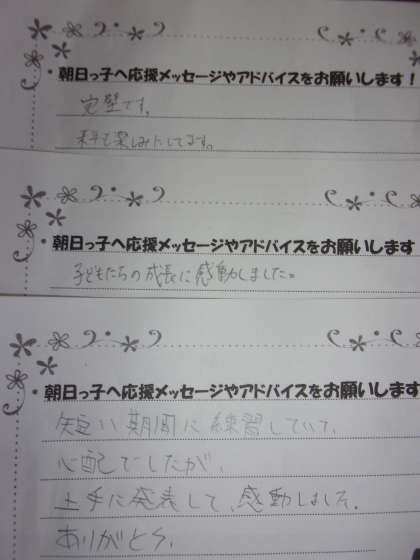 ・朝日っ子へ応援メッセージやアドバイスをお願いします！
完璧です。
来年も楽しみにしてます。
・朝日っ子へ応援メッセージやアドバイスをお願いします
子どもたちの成長に感動しました。
・朝日っ子へ応援メッセージやアドバイスをお願いします
短い期間に練習していて、
心配でしたが、
上手に発表して、感動しました。
ありがとう、